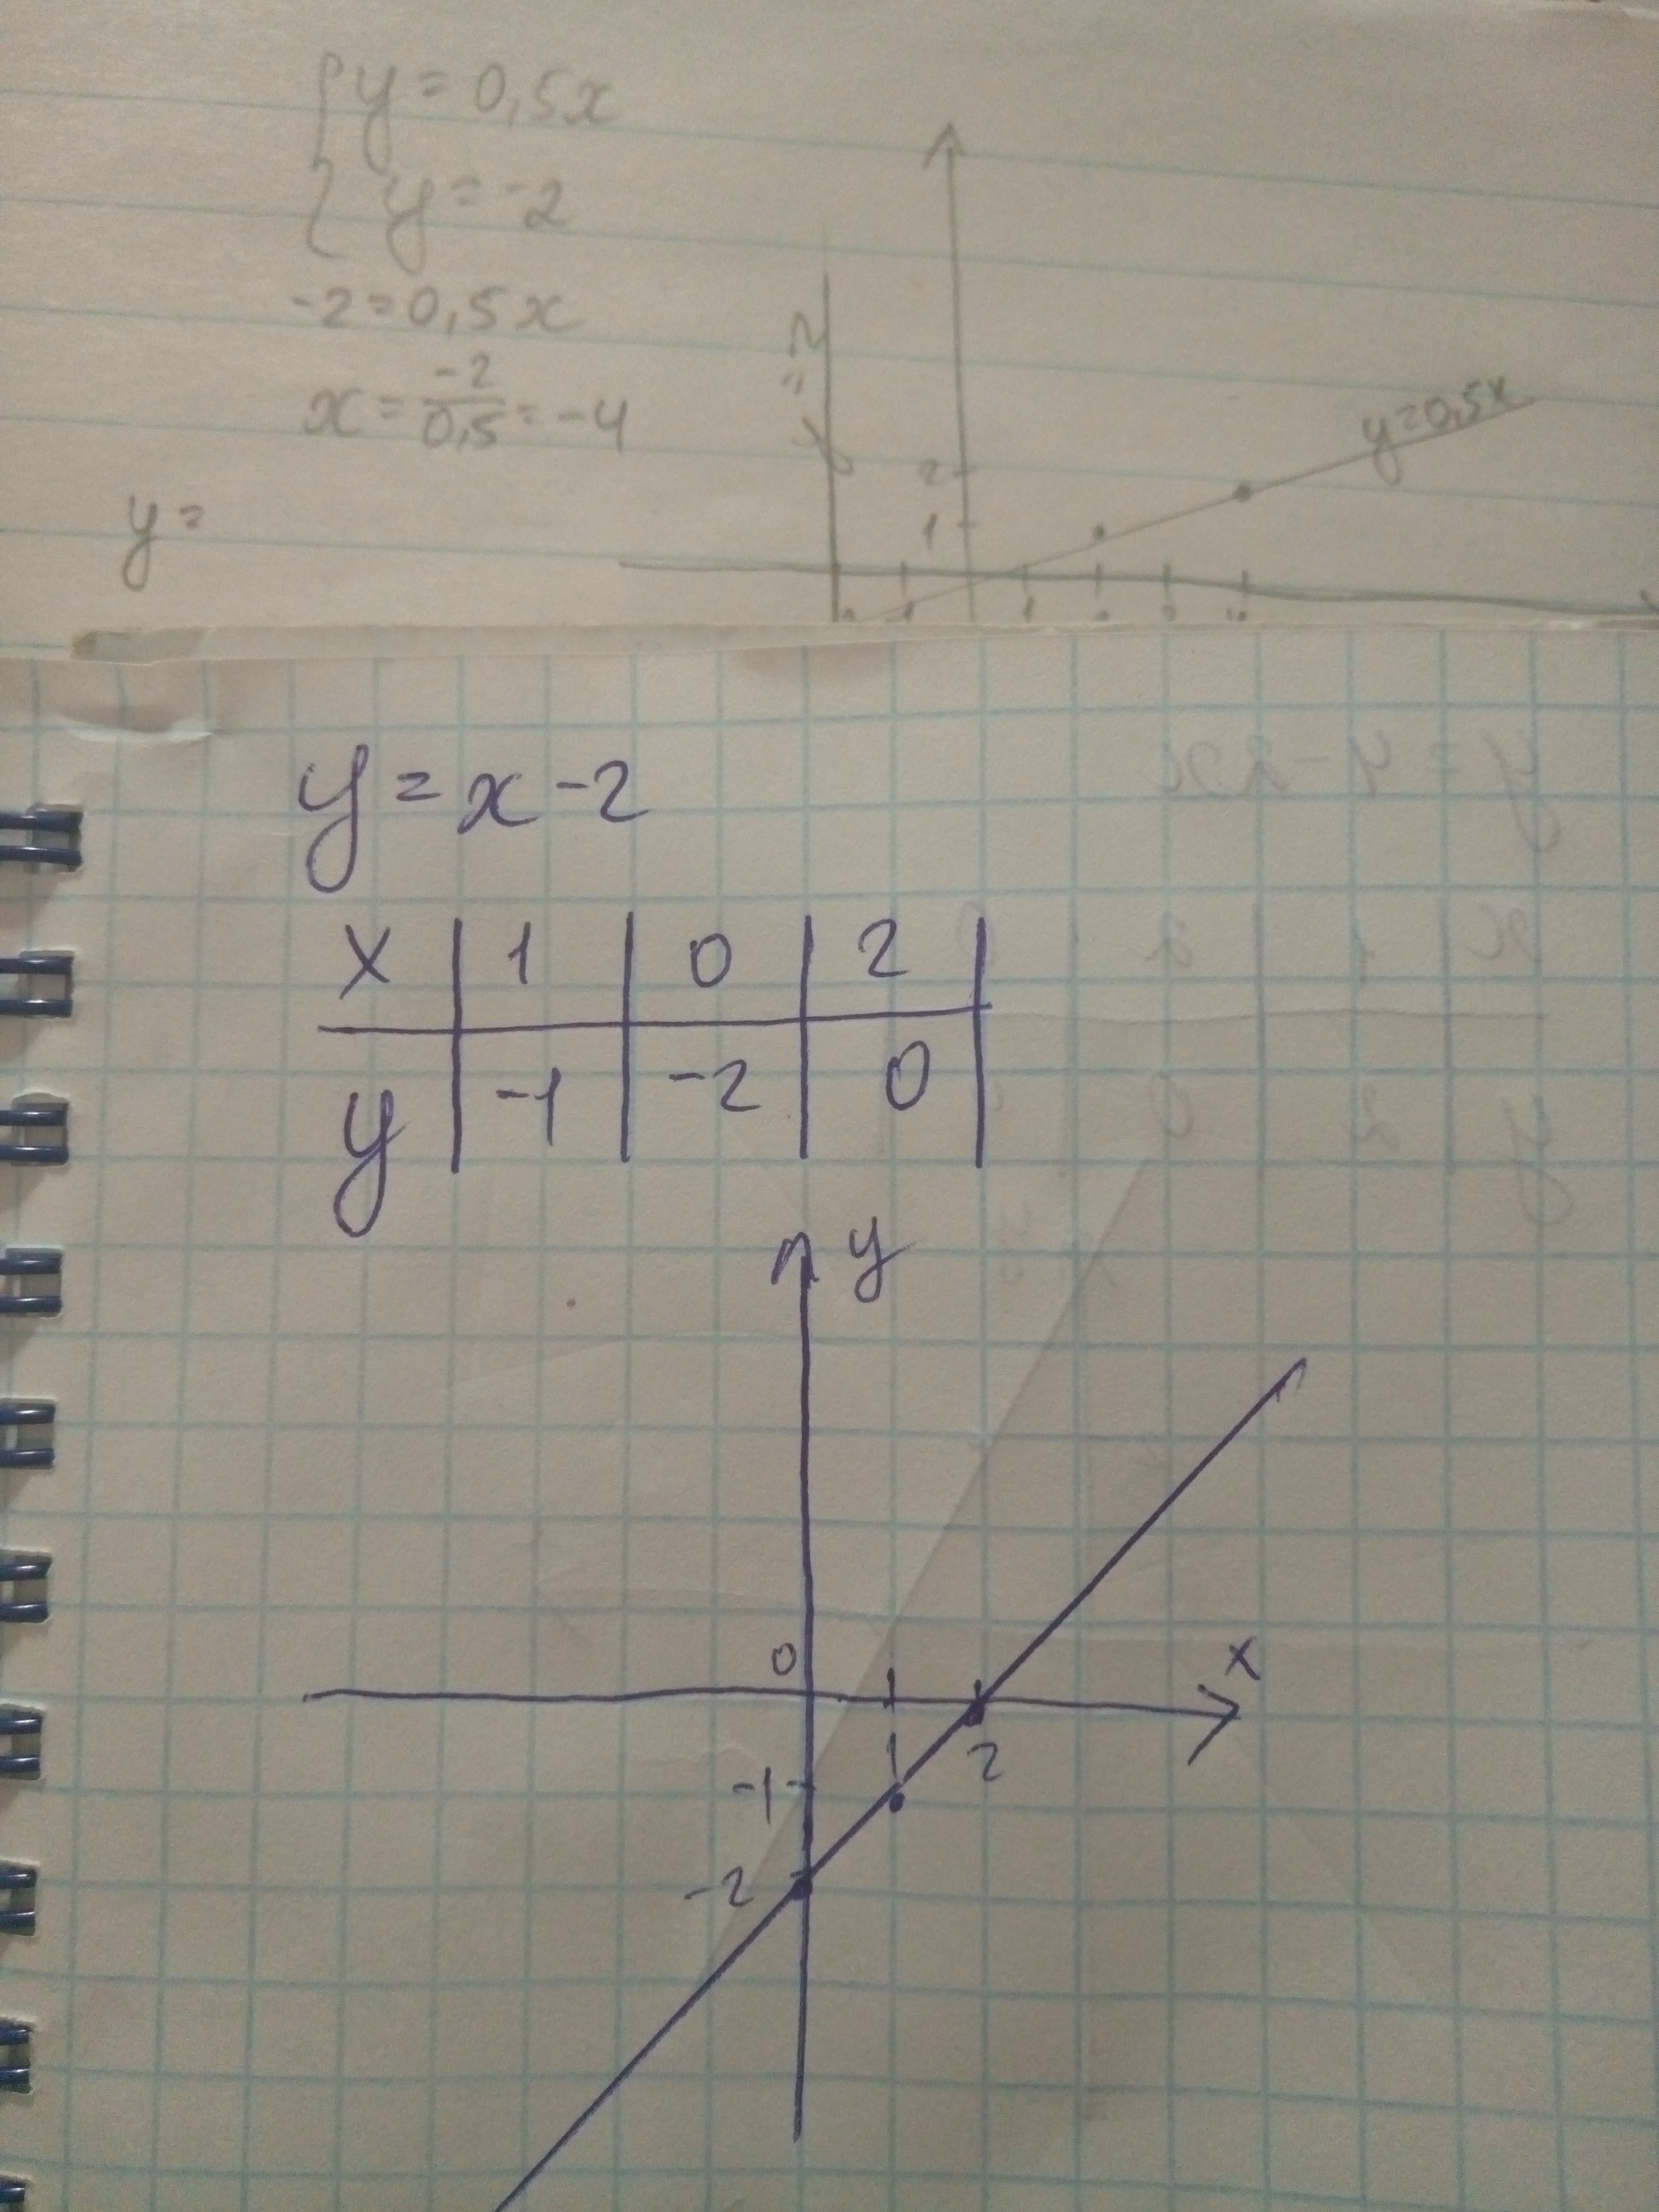 y = 0,5x
y = -2
-2 = 0,5x
x = -2/0,5 = -4
y =
y = -2
y = 0,5x
2
1
y = x - 2
x 1 0 2
y -1 -2 0
y
0
x
1
2
-1
-2
y = 4 - 2x
x 1 2
y 2 0
y